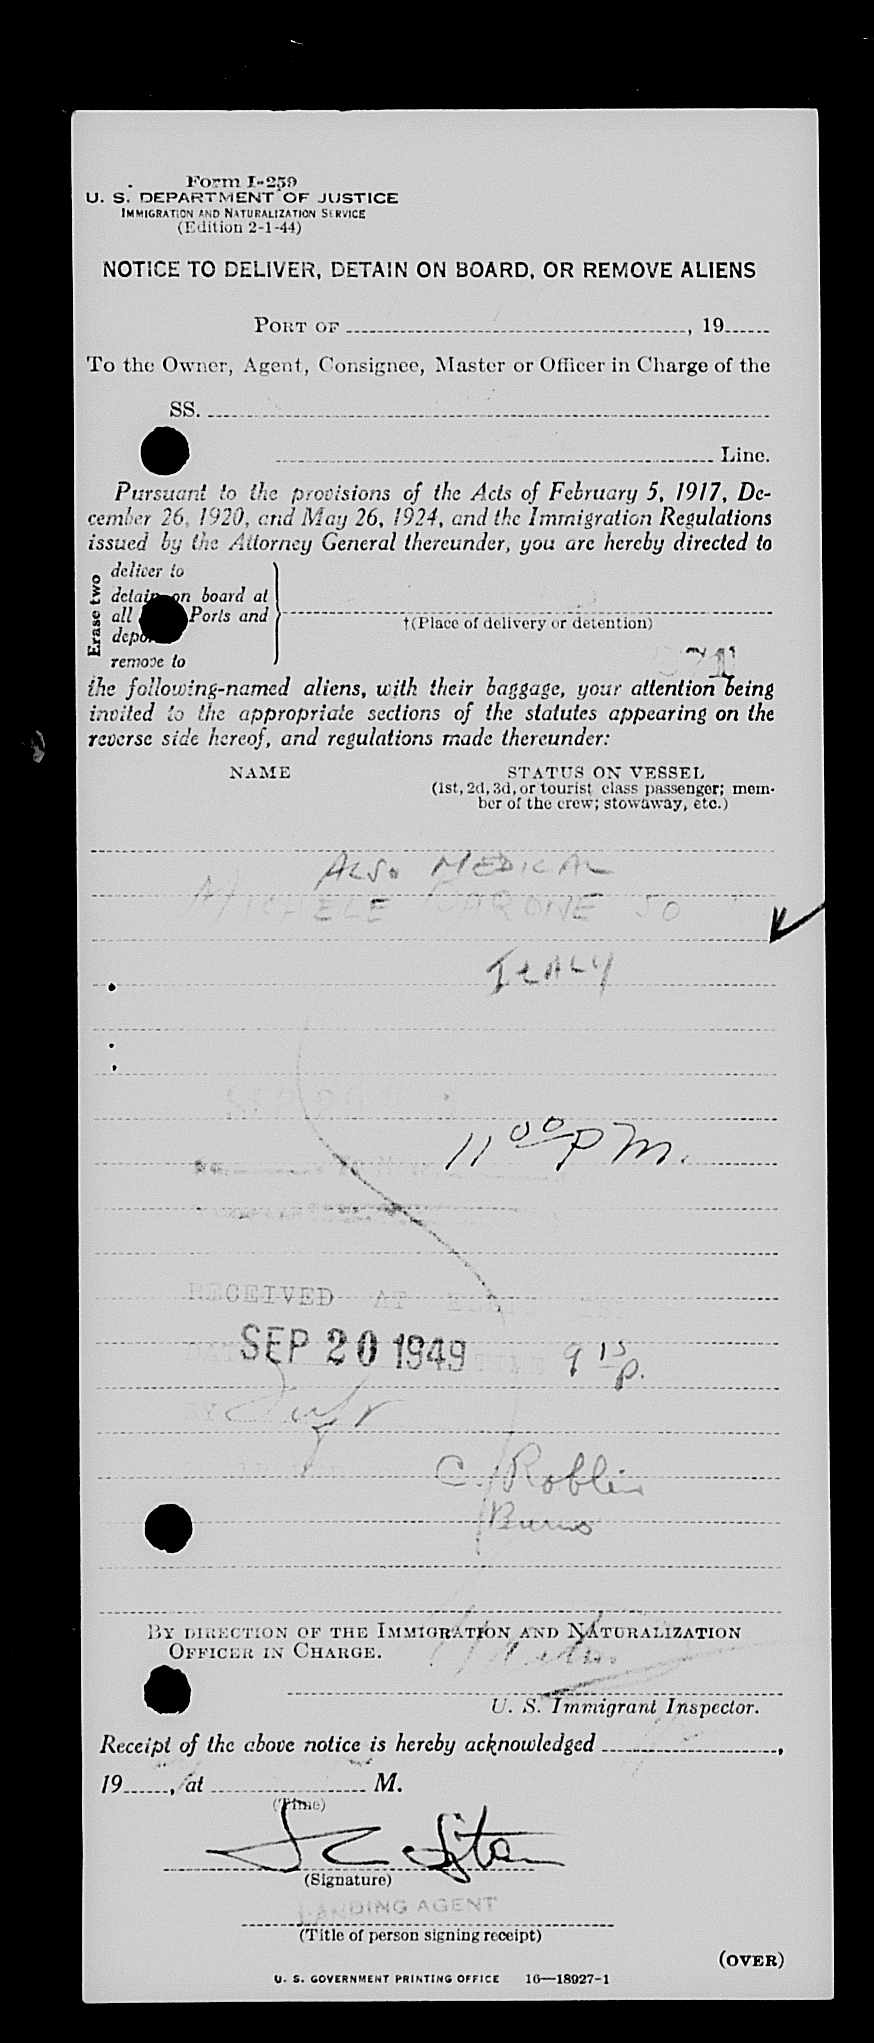 Form I-259
U. S. DEPARTMENT OF JUSTICE
IMMIGRATION AND NATURALIZATION SERVICE
(Edition 2-1-44)
NOTICE TO DELIVER, DETAIN ON BOARD, OR REMOVE ALIENS
PORT OF , 19
To the Owner, Agent, Consignee, Master or Officer in Charge of the
SS.
Line.
Pursuant to the provisions of the Acts of February 5, 1917, De-
cember 26, 1920, and May 26, 1924, and the Immigration Regulations
issued by the Attorney General thereunder, you are hereby directed to
Erase two
deliver to
detain on board at
all Ports and
remove to
†(Place of delivery or detention)
the following-named aliens, with their baggage, your attention being
invited to the appropriate sections of the statutes appearing on the
reverse side hereof, and regulations made thereunder:
NAME STATUS ON VESSEL
(1st, 2d, 3d, or tourist class passenger; mem-
ber of the crew; stowaway, etc.)
ALSO MEDICAL
MICHELE 50
ITALY
11 00 PM.
RECEIVED AT
SEP 20 1949 9 15 P.
C. Roblin
Burns
BY DIRECTION OF THE IMMIGRATION AND NATURALIZATION
OFFICER IN CHARGE.
U. S. Immigrant Inspector.
Receipt of the above notice is hereby acknowledged ,
19 , at M.
(Time)
(Signature)
LANDING AGENT
(Title of person signing receipt)
(OVER)
U. S. GOVERNMENT PRINTING OFFICE 16—18927-1